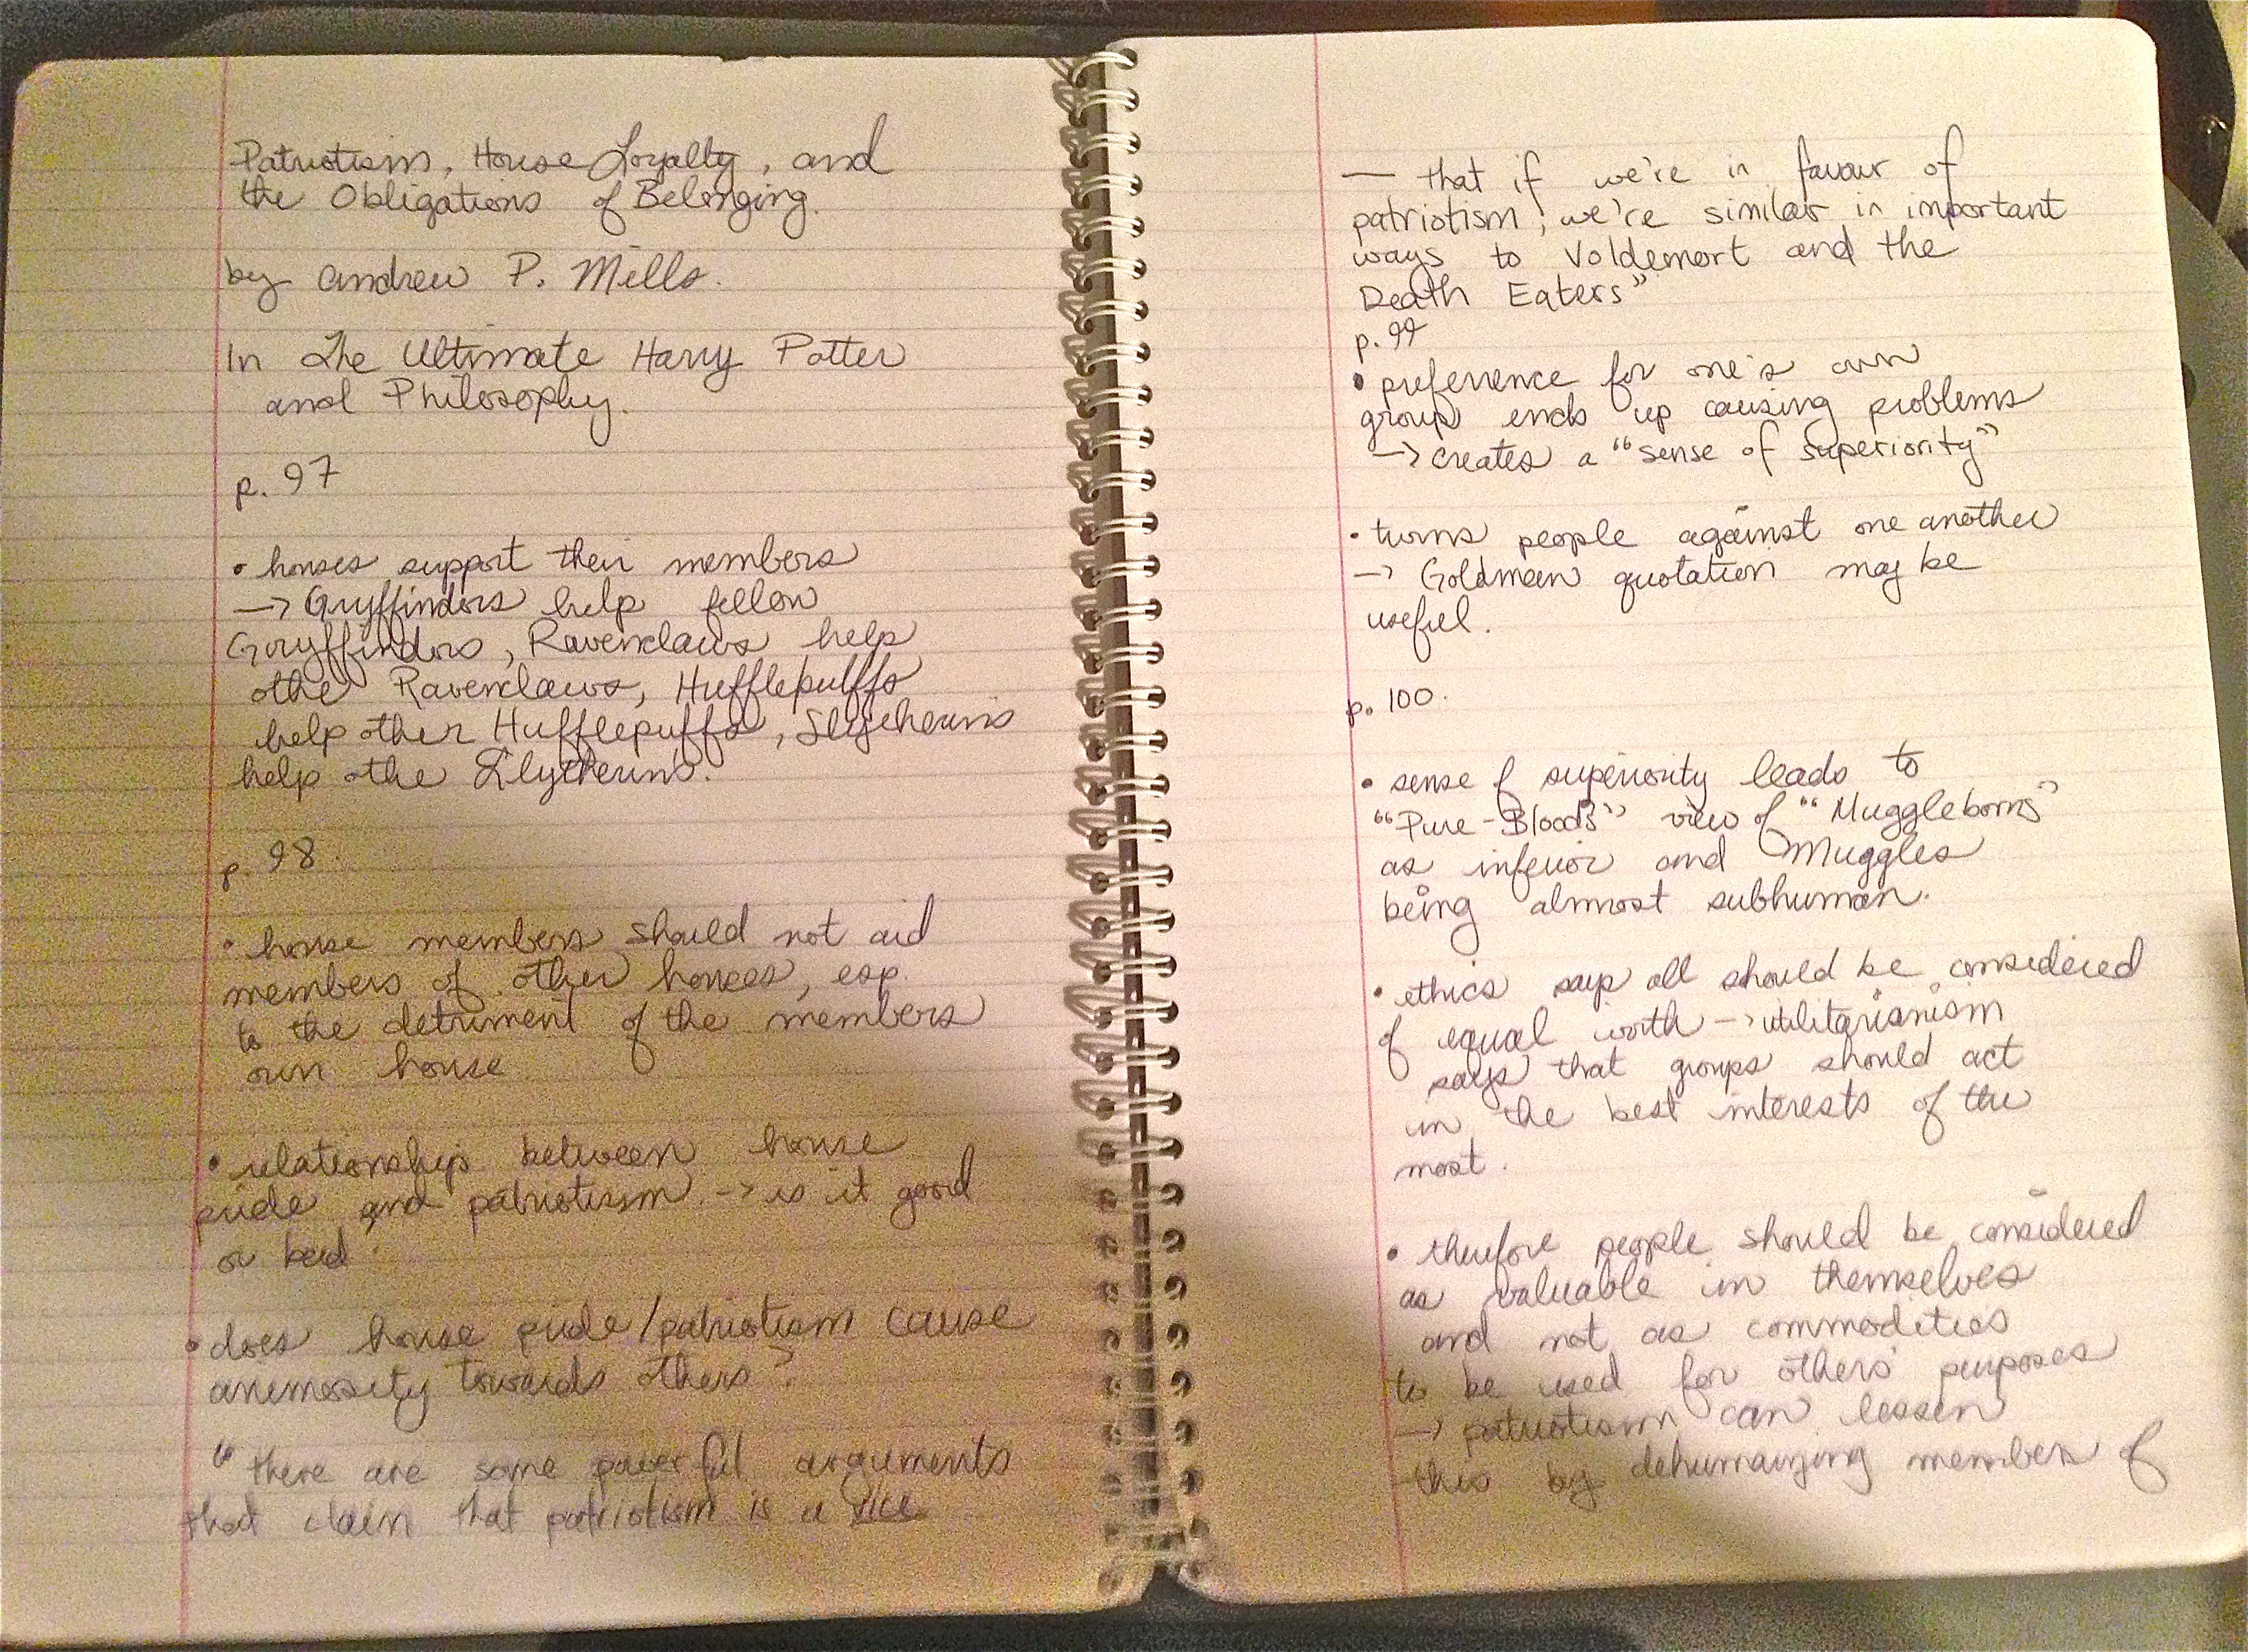 Patriotism, House Loyalty, and
the Obligations of Belonging.
by Andrew P. Mills.
In The Ultimate Harry Potter
and Philosophy.
p. 97
• houses support their members
→ Gryffindors help fellow
Gryffindors, Ravenclaws help
othe Ravenclaws, Hufflepuffs
help other Hufflepuffs, Slytherins
help othe Slytherins.
p. 98.
• house members should not aid
members of other houses, esp.
to the detriment of the members
own house
• relationship between house
pride and patriotism. → is it good
or bad.
• does house pride/patriotism cause
animosity towards others?
" there are some powerful arguments
that claim that patriotism is a vice
— that if we're in favour of
patriotism, we're similar in important
ways to Voldemort and the
Death Eaters"
p. 99
• preference for one's own
group ends up causing problems
→ creates a "sense of superiority"
• turns people against one another
→ Goldman quotation may be
useful.
p. 100.
• sense of superiority leads to
"Pure-Bloods" view of "Muggleborns"
as inferior and Muggles
being almost subhuman.
• ethics say all should be considered
of equal worth → utilitarianism
says that groups should act
in the best interests of the
most.
• therefore people should be considered
as valuable in themselves
and not as commodities
to be used for others' purposes
→ patriotism can lessen
this by dehumanizing members of